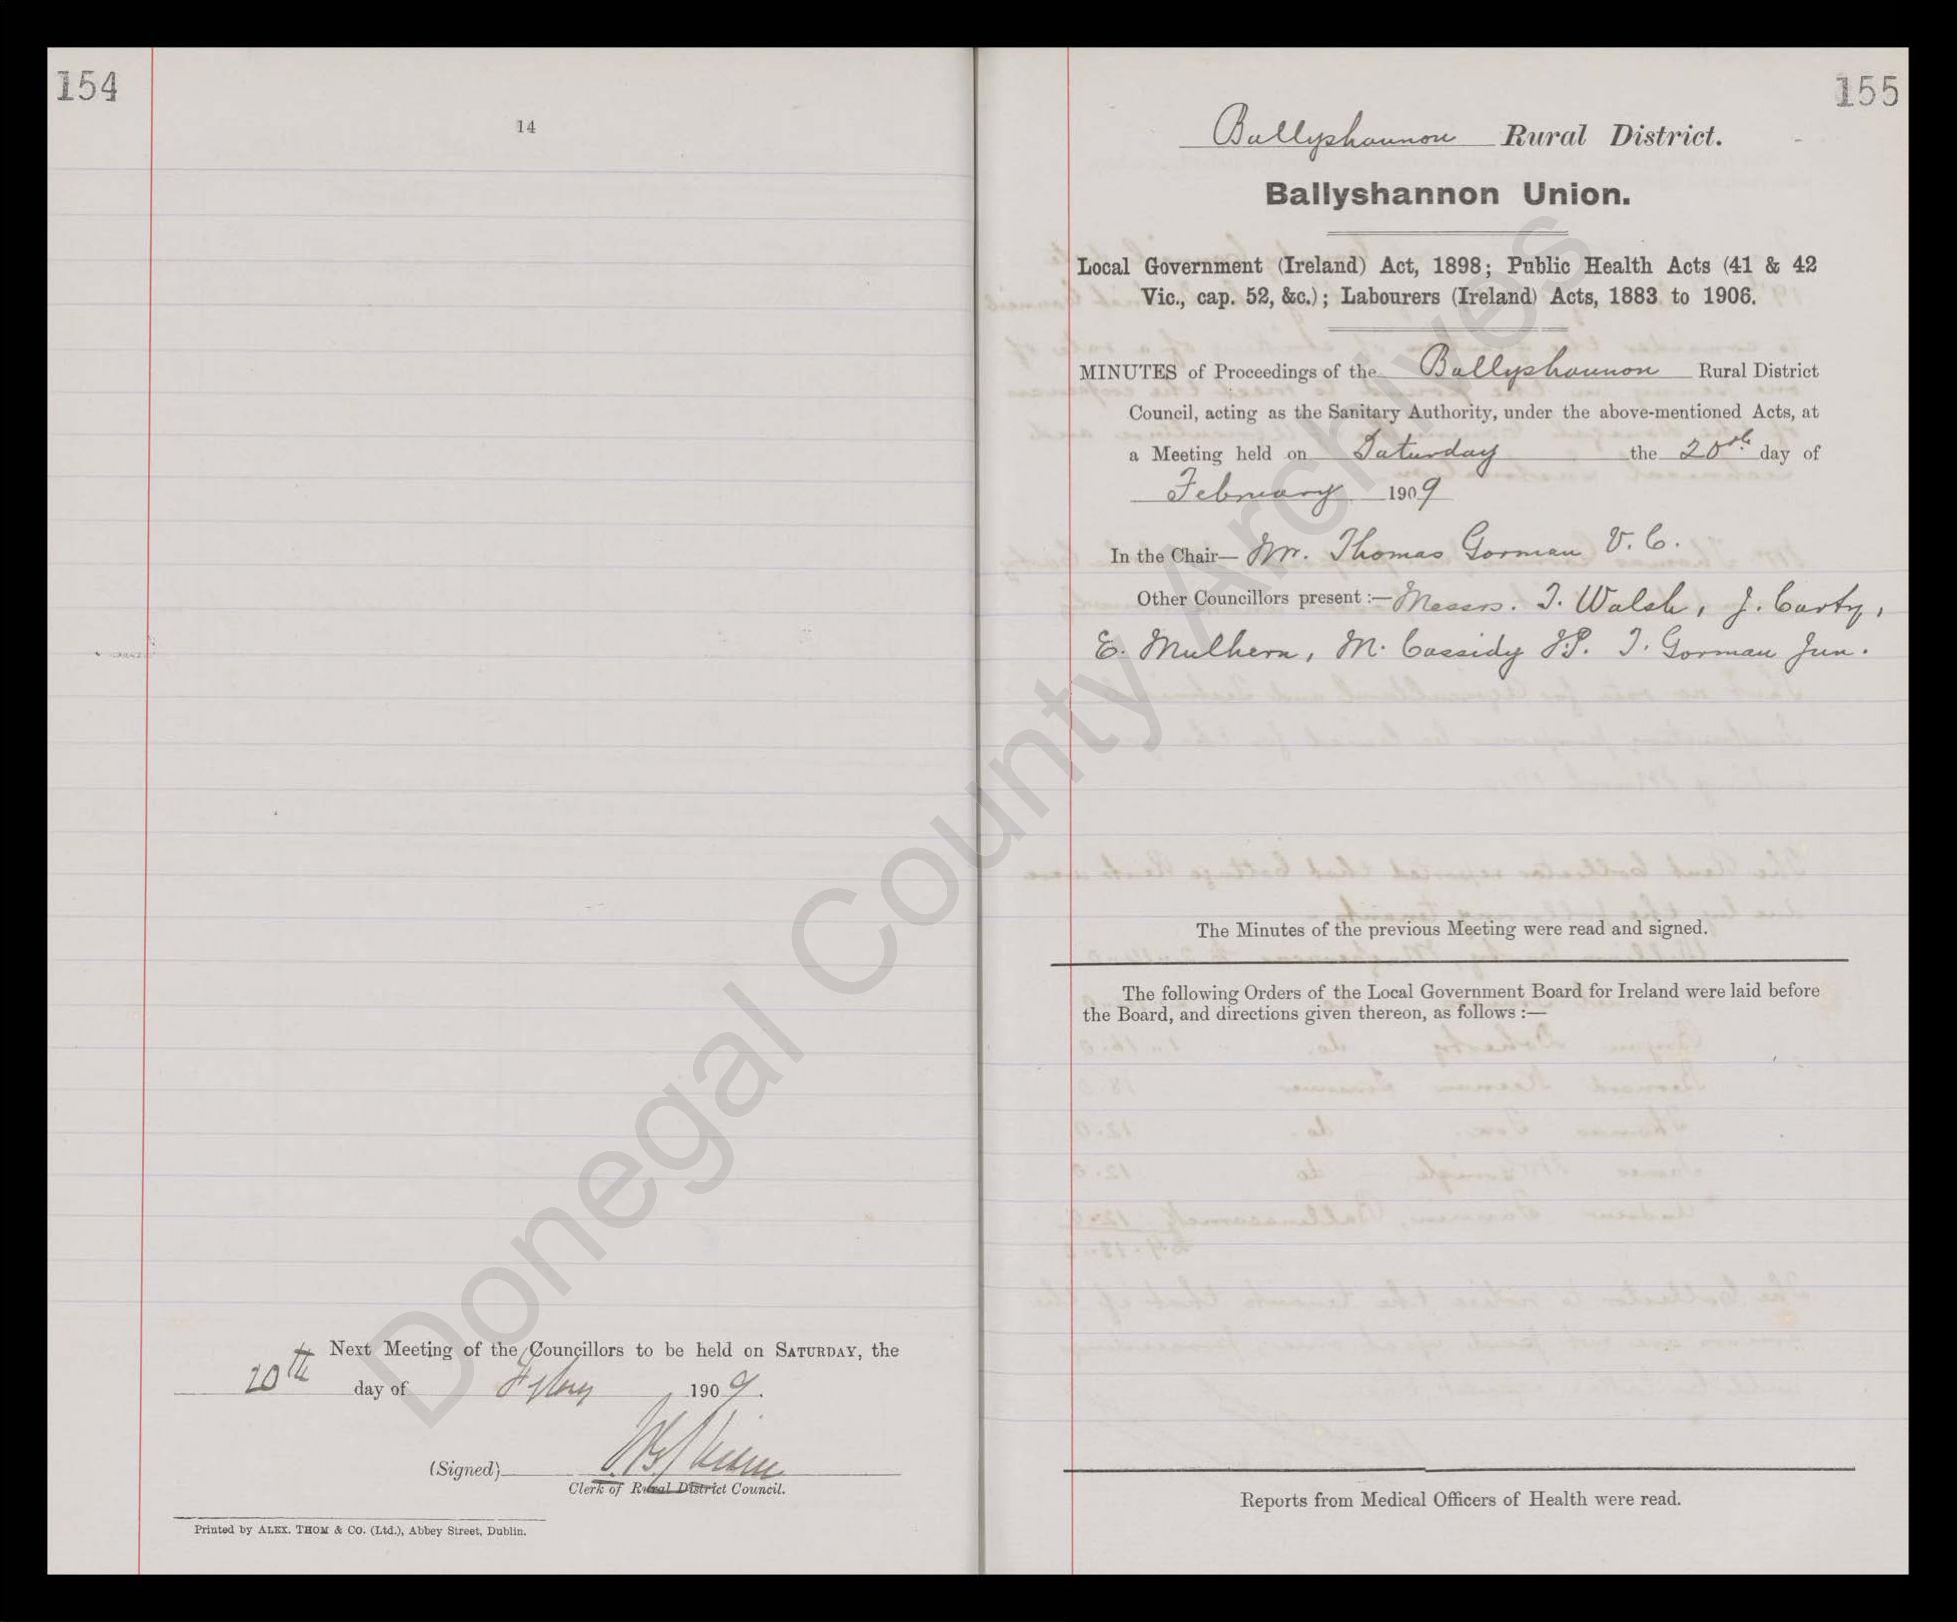 154
14
Next Meeting of the Councillors to be held on SATURDAY, the
20th day of 1909.
(Signed)
Clerk of Rural District Council.
Printed by ALEX. THOM & CO. (Ltd.), Abbey Street, Dublin.
155
Ballyshannon Rural District.
Ballyshannon Union.
Local Government (Ireland) Act, 1898; Public Health Acts (41 & 42
Vic., cap. 52, &c.); Labourers (Ireland) Acts, 1883 to 1906.
MINUTES of Proceedings of the Ballyshannon Rural District
Council, acting as the Sanitary Authority, under the above-mentioned Acts, at
a Meeting held on Saturday the 20th day of
February 1909
In the Chair— Mr. Thomas Gorman V.C.
Other Councillors present :— Messrs. T. Walsh, J. Carty,
E. Mulhern, M. Cassidy J.P. T. Gorman Jun.
The Minutes of the previous Meeting were read and signed.
The following Orders of the Local Government Board for Ireland were laid before
the Board, and directions given thereon, as follows :—
Reports from Medical Officers of Health were read.
Donegal County Archives